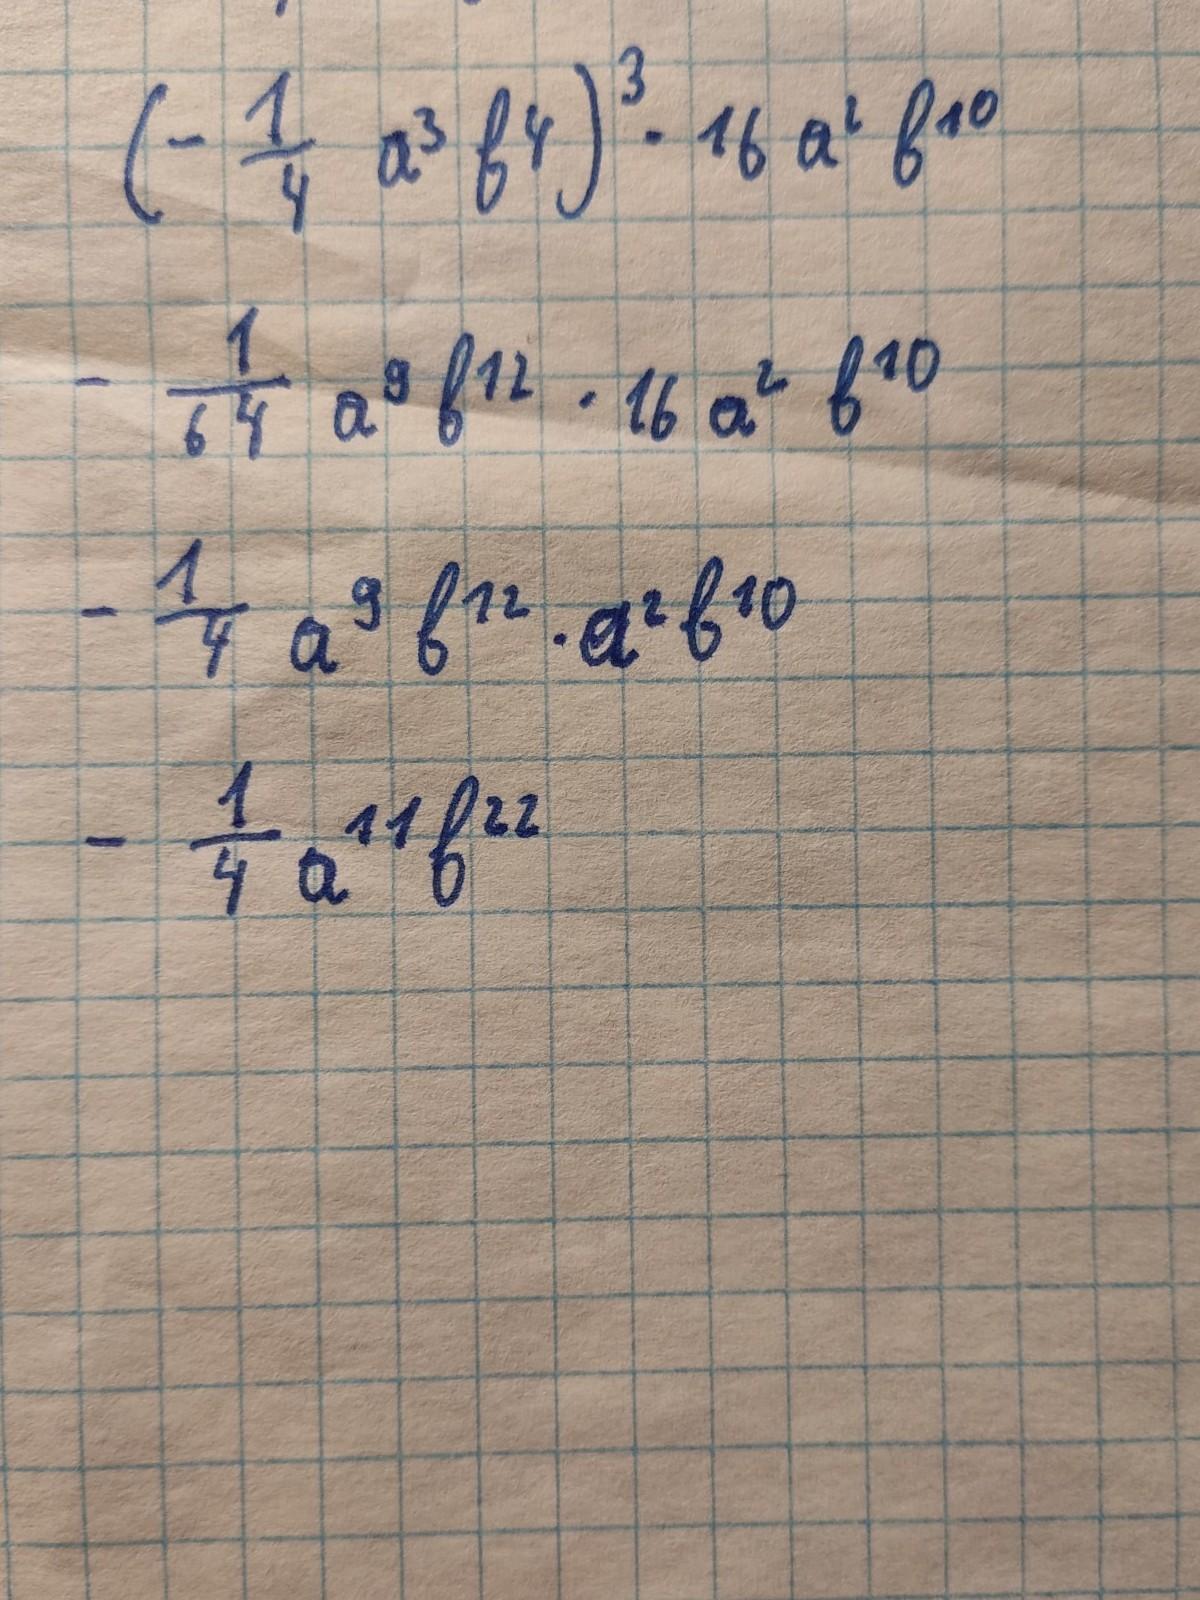 (- 1/4 a³ b⁴)³ · 16 a² b¹⁰
- 1/64 a⁹ b¹² · 16 a² b¹⁰
- 1/4 a⁹ b¹² · a² b¹⁰
- 1/4 a¹¹ b²²